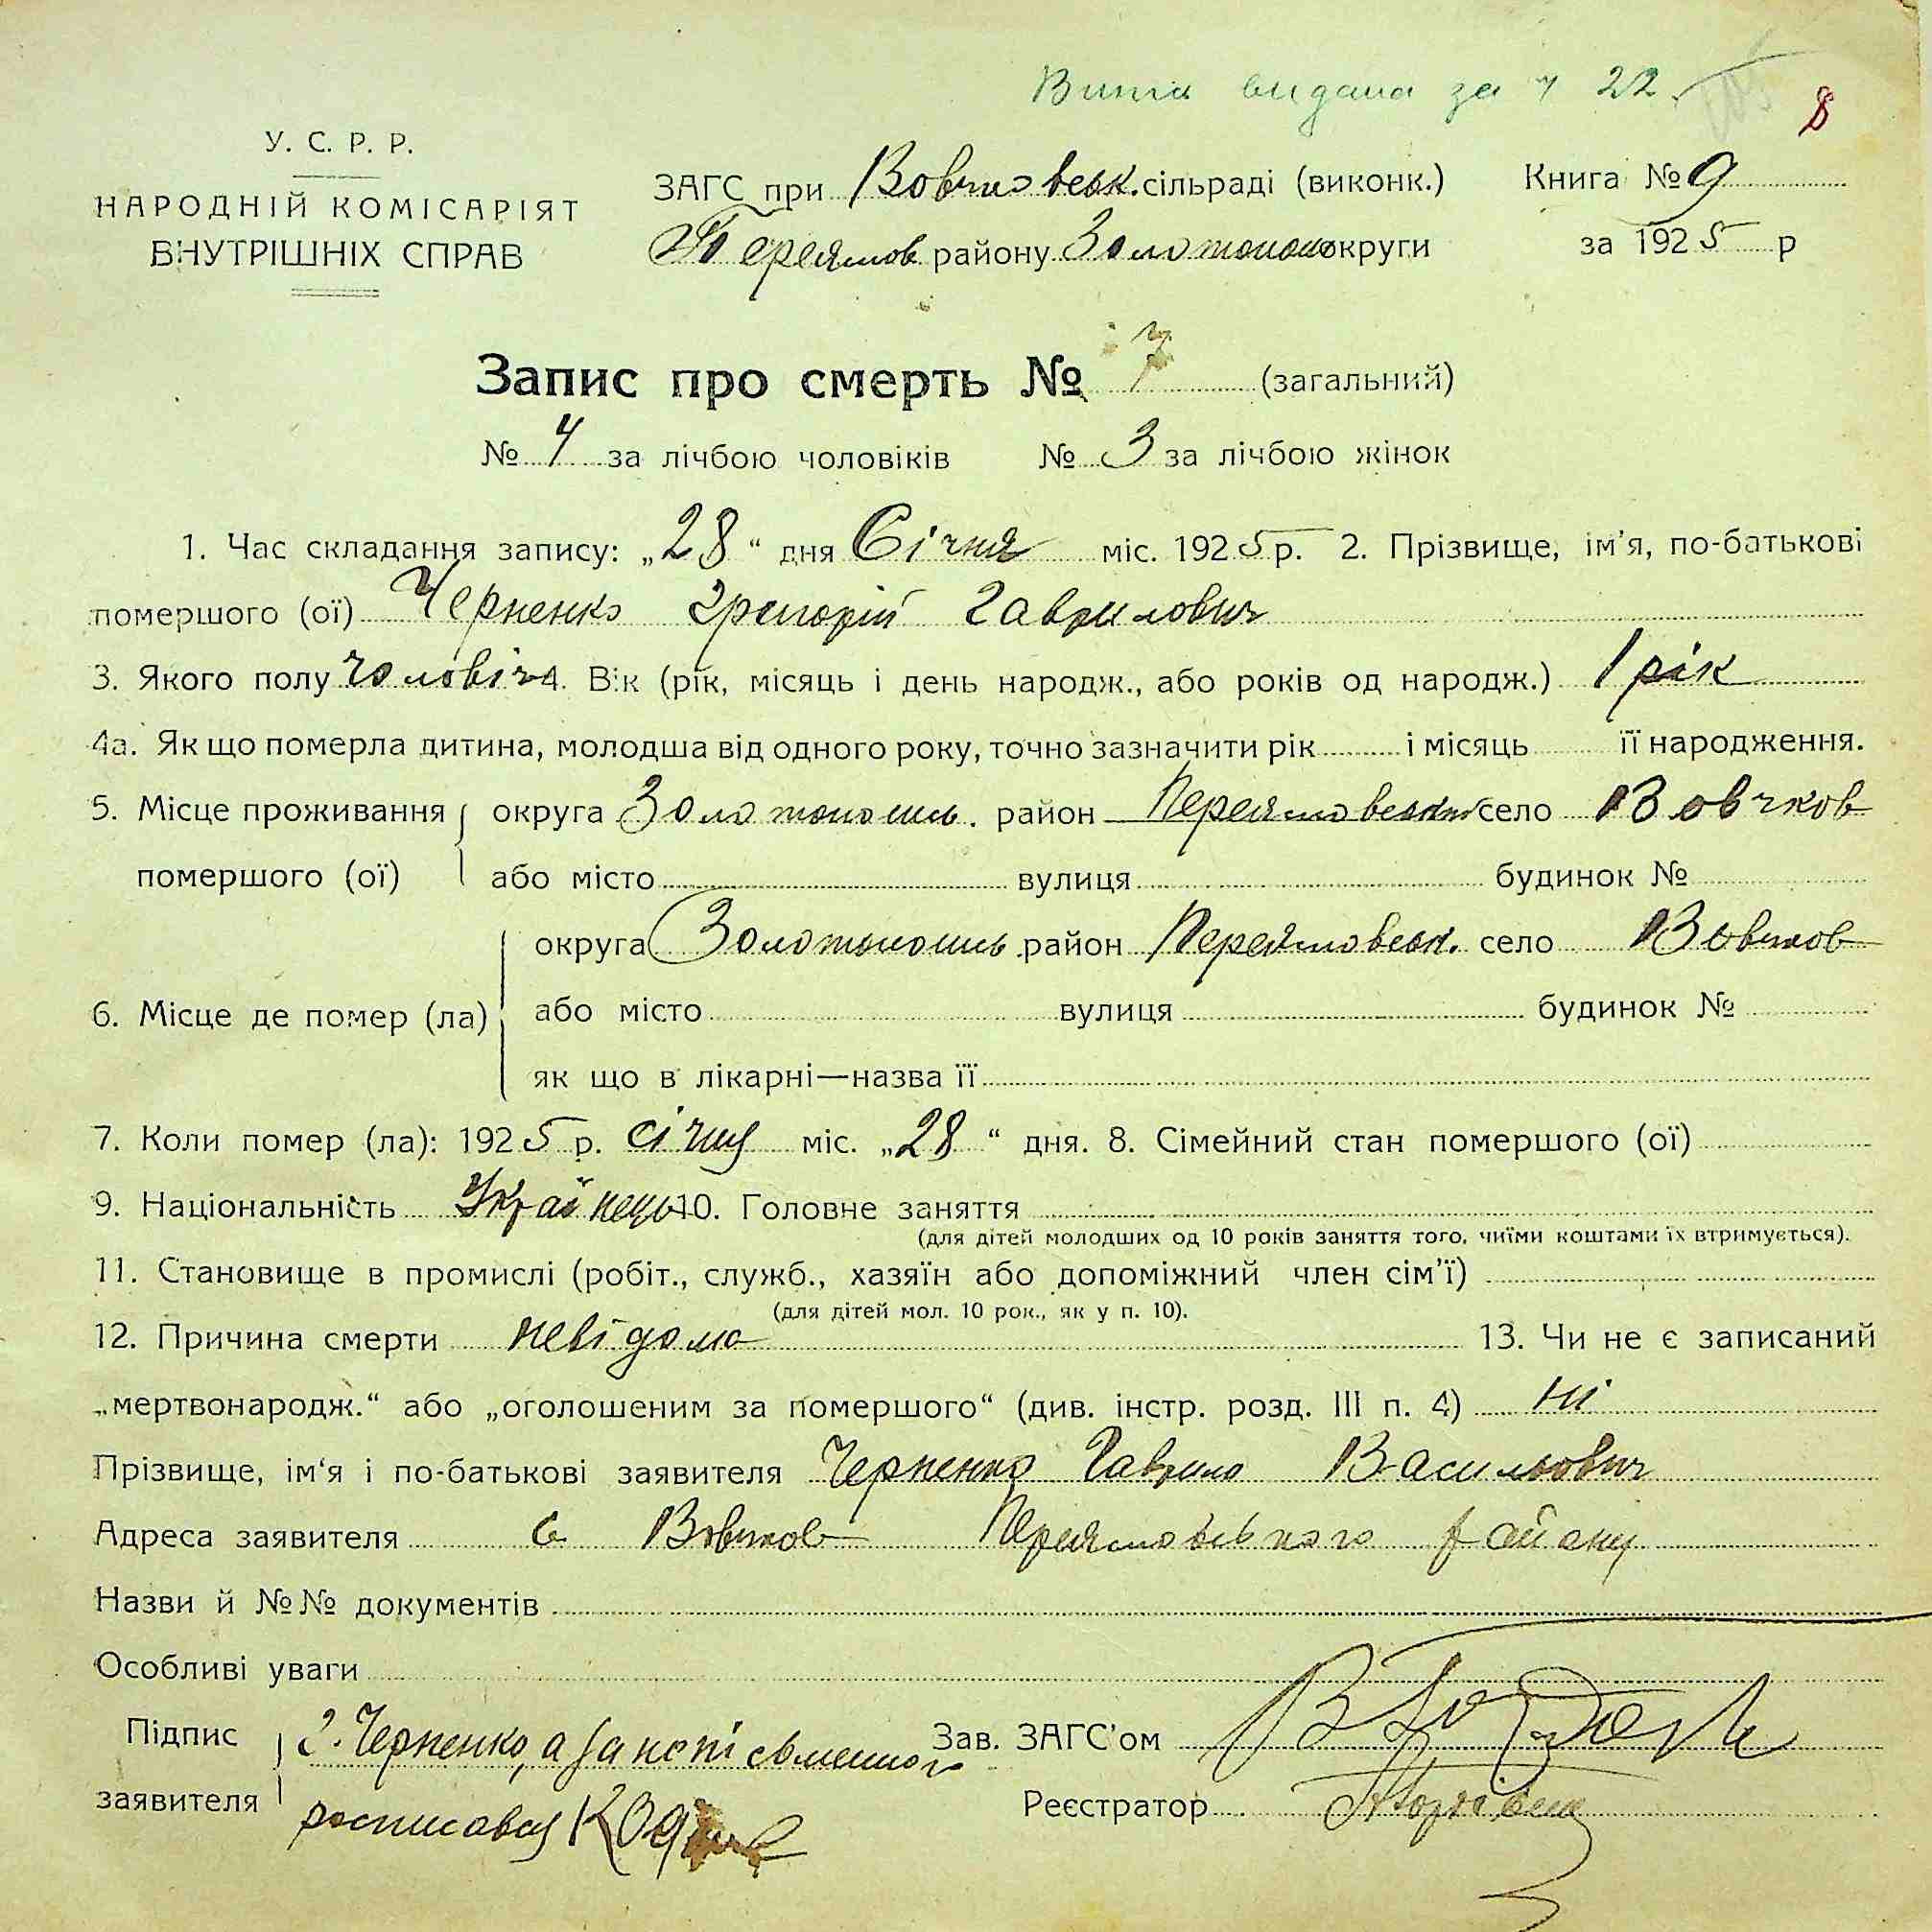 видана за ч 22
8
У. С. Р. Р.
НАРОДНІЙ КОМІСАРІЯТ
ВНУТРІШНІХ СПРАВ
ЗАГС при Вовчковськ. сільраді (виконк.) Книга № 9
Переяслов району Золотонош округи за 1925 р
Запис про смерть № 7 (загальний)
№ 4 за лічбою чоловіків № 3 за лічбою жінок
1. Час складання запису: „28“ дня Січня міс. 1925 р. 2. Прізвище, ім'я, по-батькові
помершого (ої) Черненко Григорій Гаврилович
3. Якого полу чоловіч 4. Вік (рік, місяць і день народж., або років од народж.) 1 рік
4а. Як що померла дитина, молодша від одного року, точно зазначити рік і місяць її народження.
5. Місце проживання округа Золотонош. район Переяславськ село Вовчков
помершого (ої) або місто вулиця будинок №
округа Золотонош. район Переяславськ. село Вовчков
6. Місце де помер (ла) або місто вулиця будинок №
як що в лікарні—назва її
7. Коли помер (ла): 1925 р. січня міс. „28“ дня. 8. Сімейний стан помершого (ої)
9. Національність Українець 10. Головне заняття
(для дітей молодших од 10 років заняття того, чиїми коштами їх втримується).
11. Становище в промислі (робіт., служб., хазяїн або допоміжний член сім'ї)
(для дітей мол. 10 рок., як у п. 10).
12. Причина смерти невідома 13. Чи не є записаний
„мертвонародж.“ або „оголошеним за помершого“ (див. інстр. розд. III п. 4) ні
Прізвище, ім'я і по-батькові заявителя Черненко Гаврило Васильович
Адреса заявителя с Вовчков Переясловського району
Назви й №№ документів
Особливі уваги
Підпис Г. Черненко, а за неписьменного Зав. ЗАГС'ом
заявителя росписавсь Реєстратор